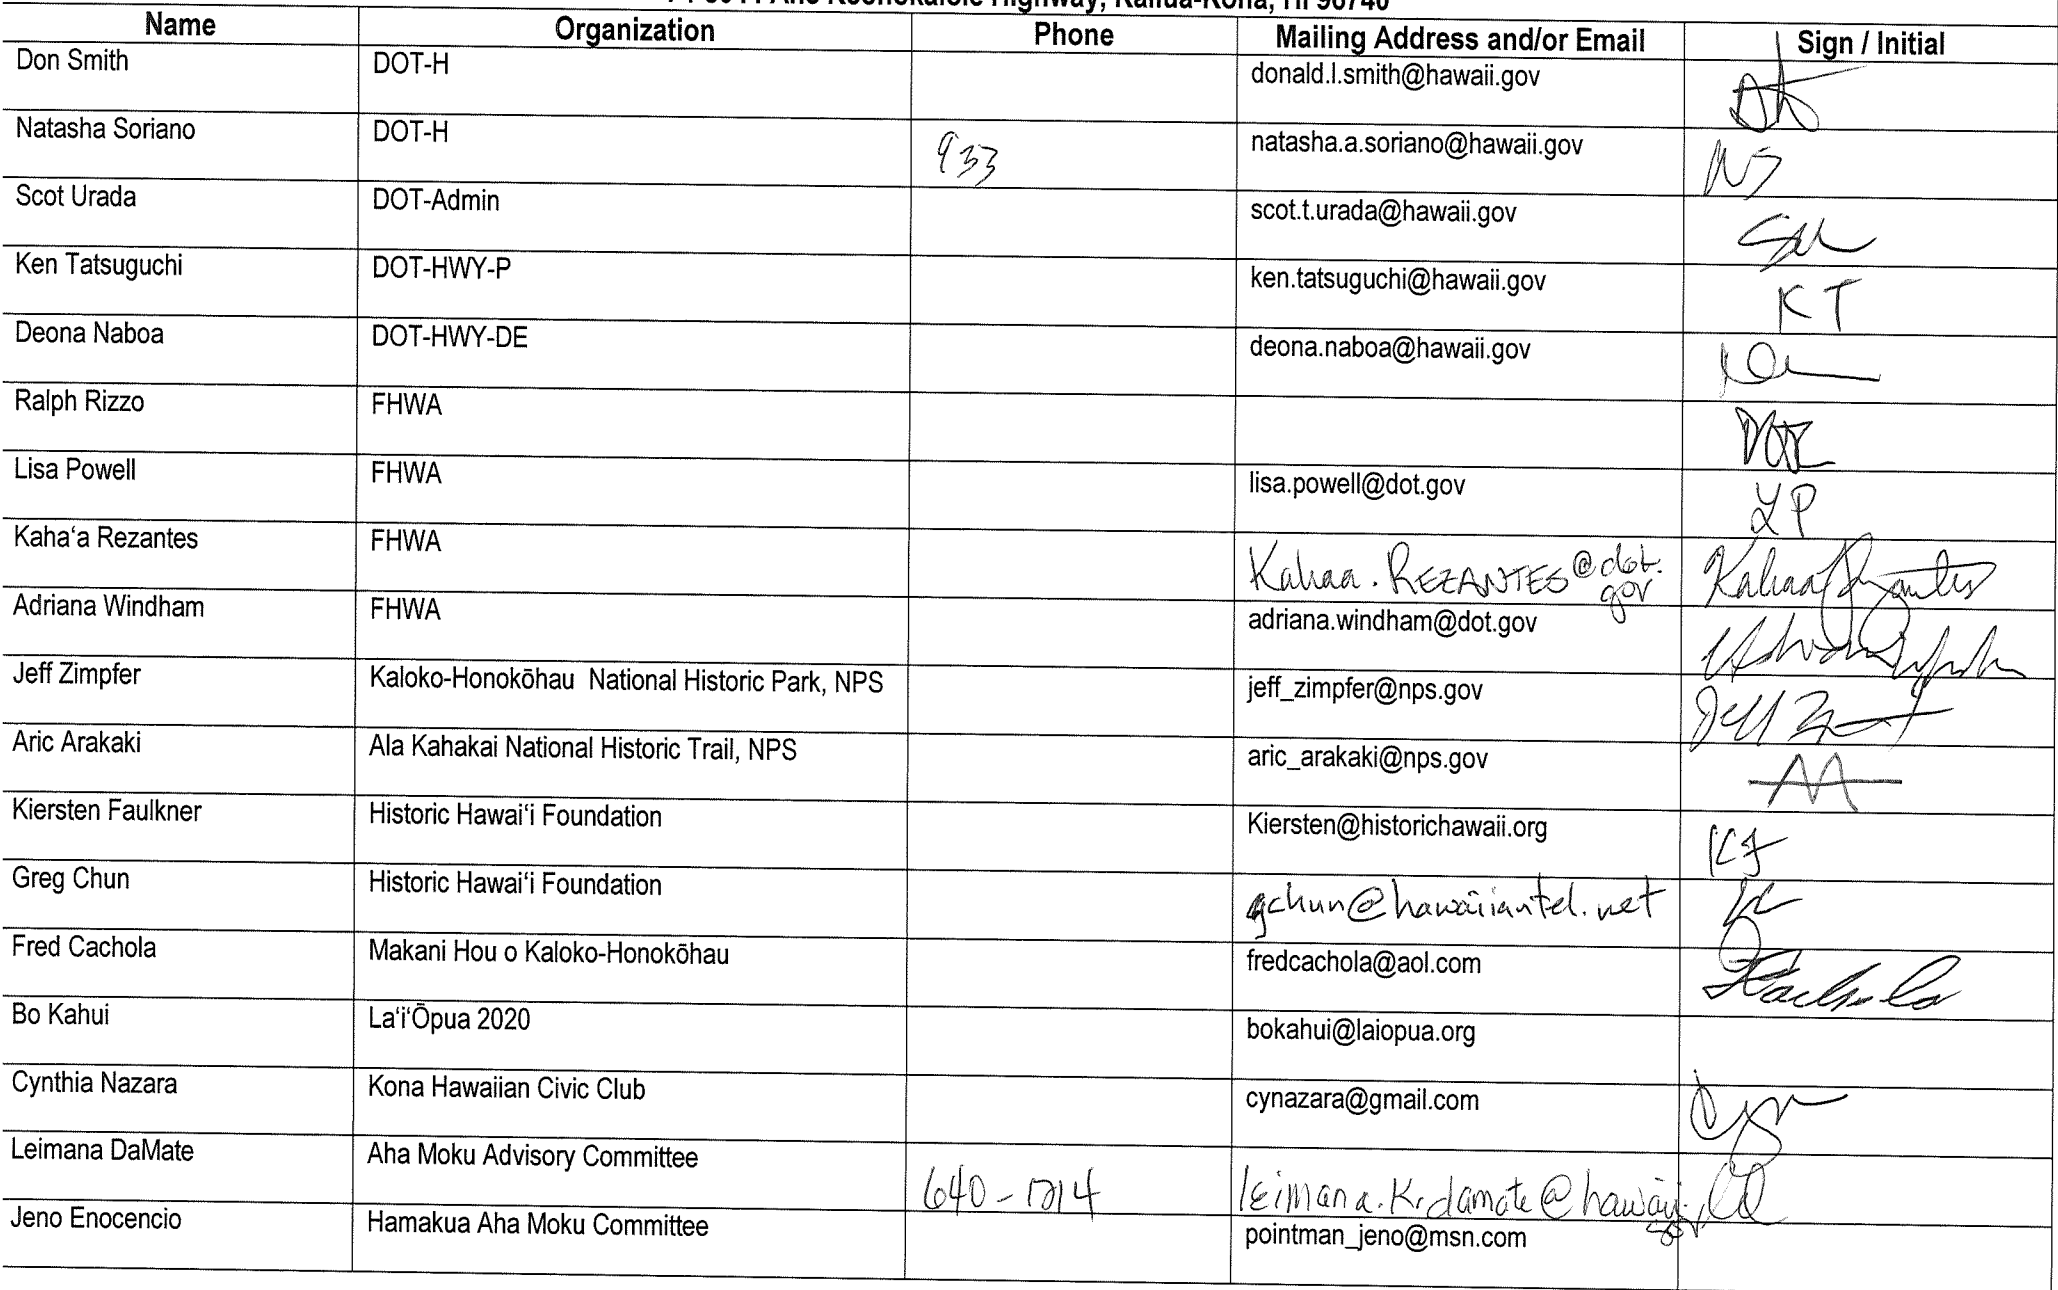 Name Organization Phone Mailing Address and/or Email Sign / Initial
Don Smith DOT-H donald.l.smith@hawaii.gov
Natasha Soriano DOT-H 933 natasha.a.soriano@hawaii.gov NS
Scot Urada DOT-Admin scot.t.urada@hawaii.gov SU
Ken Tatsuguchi DOT-HWY-P ken.tatsuguchi@hawaii.gov KT
Deona Naboa DOT-HWY-DE deona.naboa@hawaii.gov
Ralph Rizzo FHWA
Lisa Powell FHWA lisa.powell@dot.gov LP
Kahaʻa Rezantes FHWA Kahaa.REZANTES@dot.gov Kahaa Rezantes
Adriana Windham FHWA adriana.windham@dot.gov
Jeff Zimpfer Kaloko-Honokōhau National Historic Park, NPS jeff_zimpfer@nps.gov Jeff
Aric Arakaki Ala Kahakai National Historic Trail, NPS aric_arakaki@nps.gov AA
Kiersten Faulkner Historic Hawaiʻi Foundation Kiersten@historichawaii.org KF
Greg Chun Historic Hawaiʻi Foundation gchun@hawaiiantel.net
Fred Cachola Makani Hou o Kaloko-Honokōhau fredcachola@aol.com FCachola
Bo Kahui LaʻiʻŌpua 2020 bokahui@laiopua.org
Cynthia Nazara Kona Hawaiian Civic Club cynazara@gmail.com
Leimana DaMate Aha Moku Advisory Committee 640-1214 leimana.K.damate@hawaii.gov
Jeno Enocencio Hamakua Aha Moku Committee pointman_jeno@msn.com